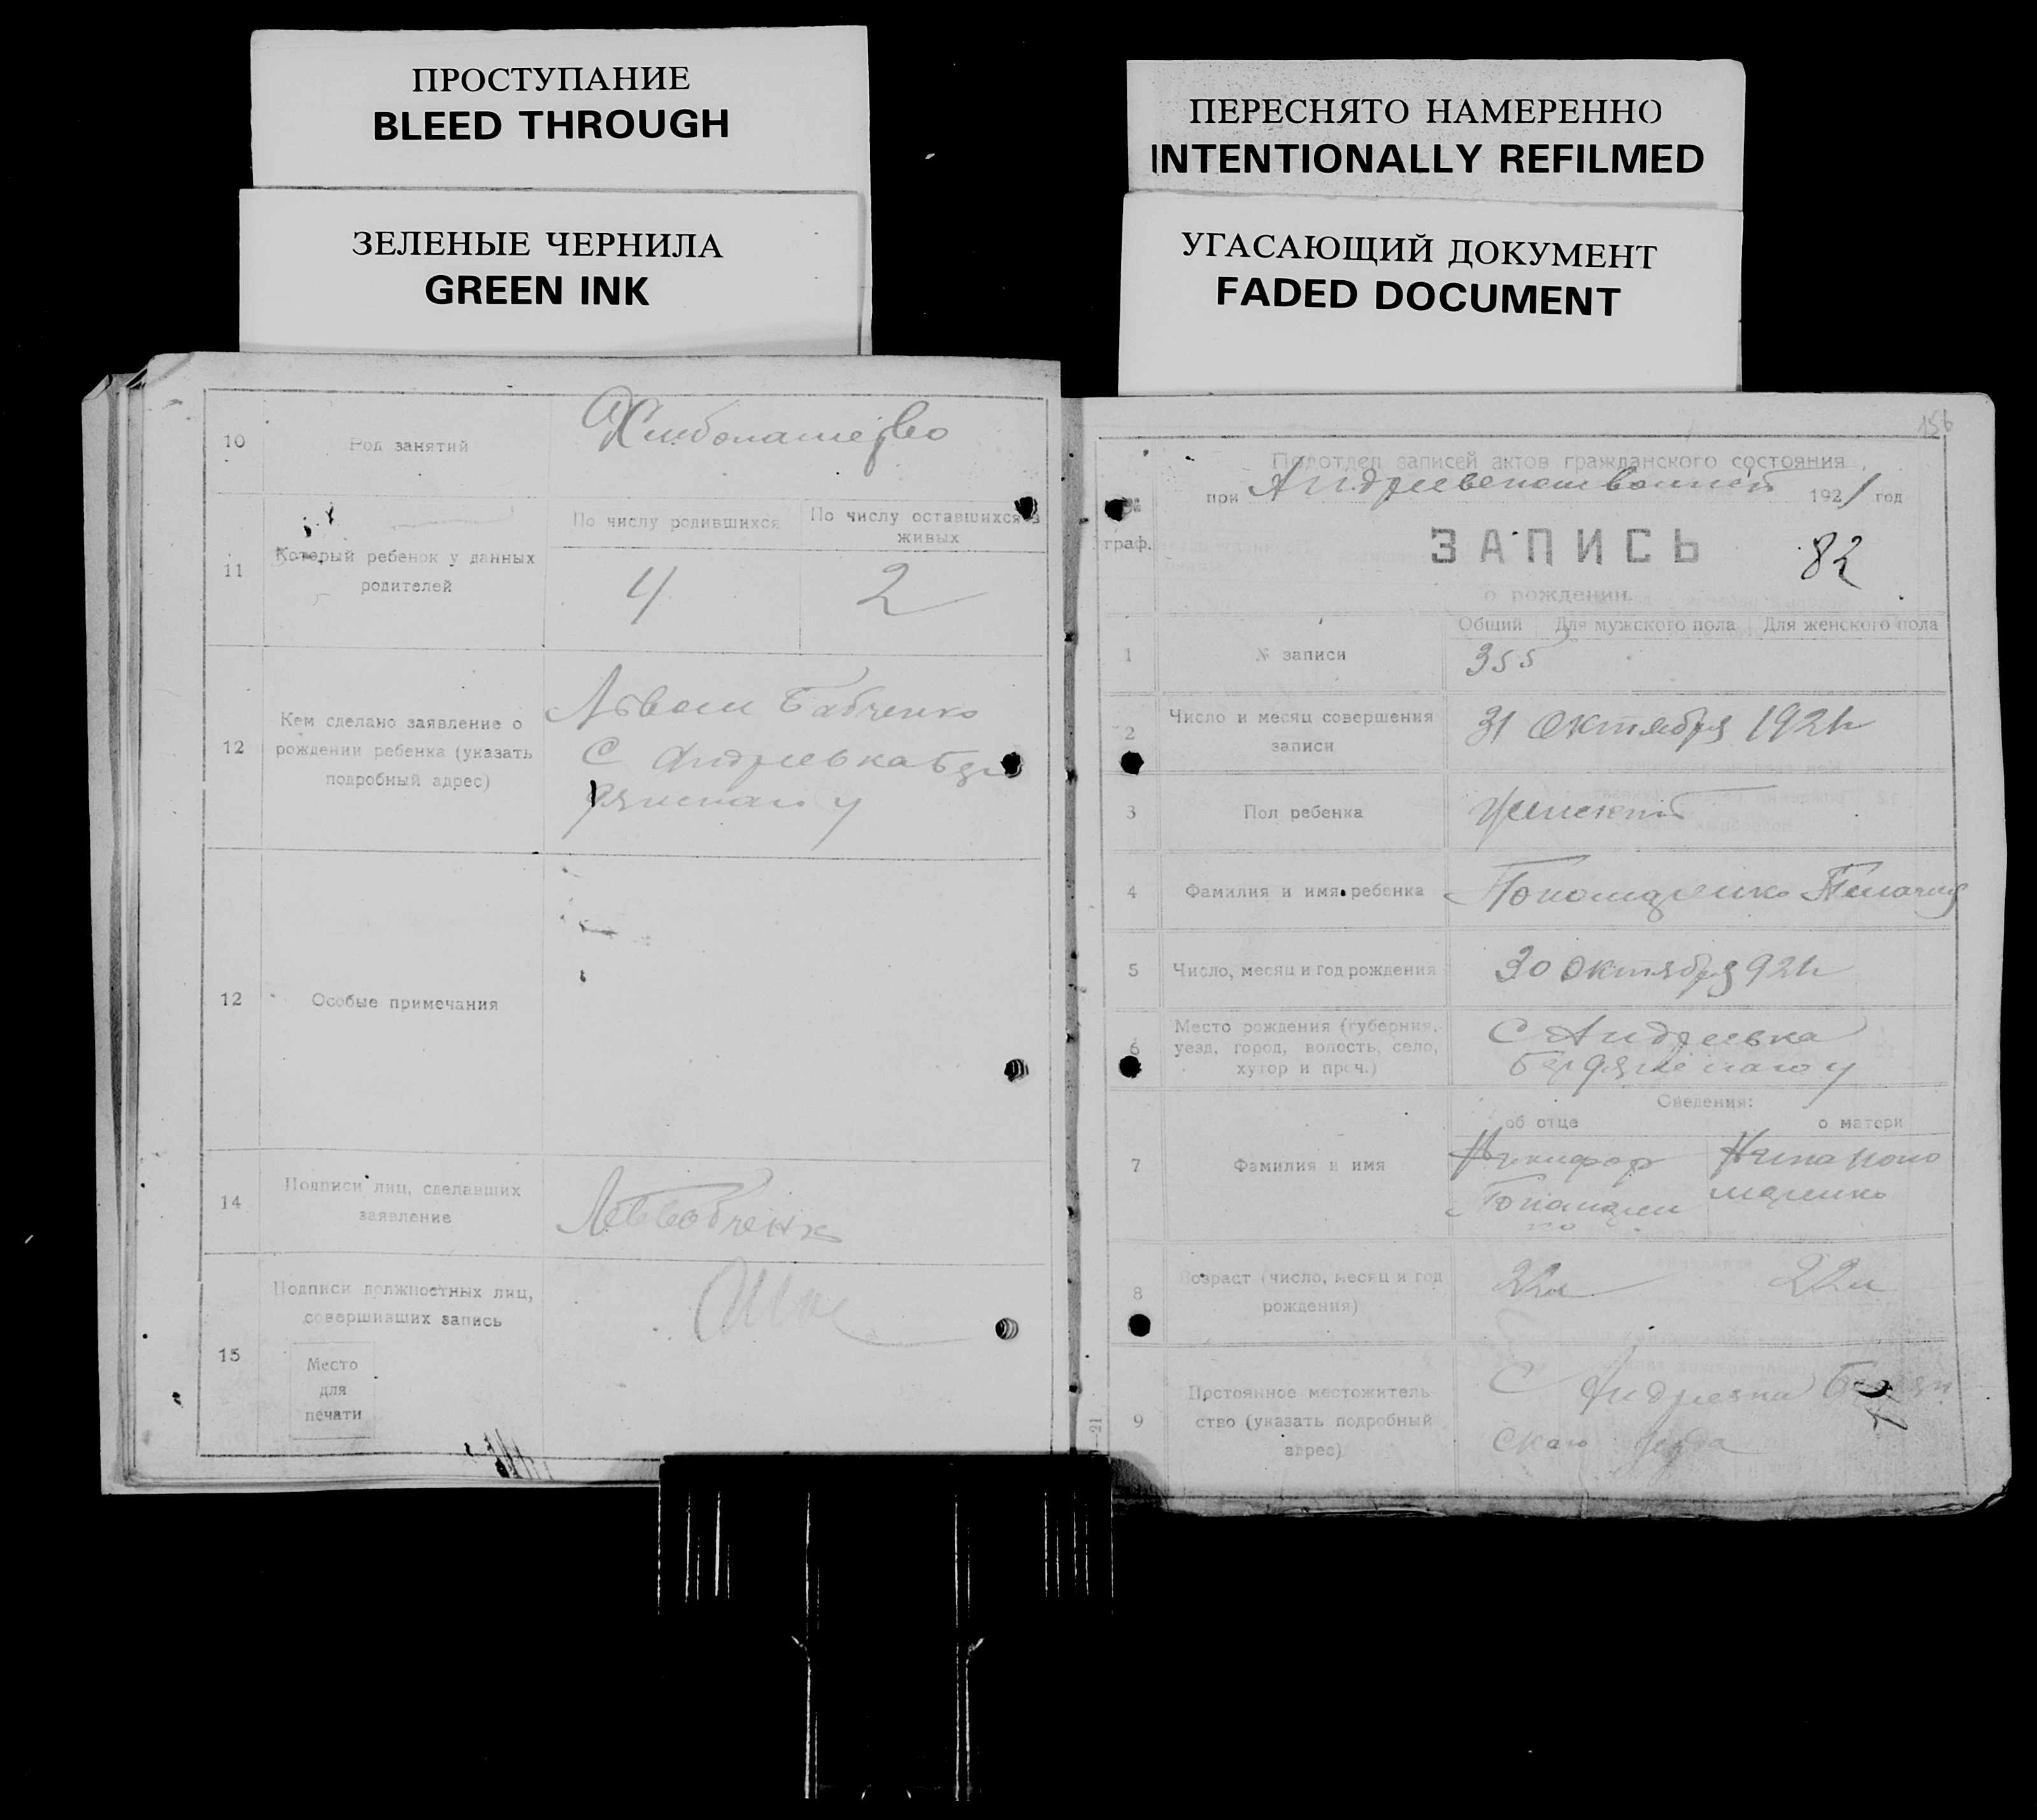 ПРОСТУПАНИЕ
BLEED THROUGH
ЗЕЛЕНЫЕ ЧЕРНИЛА
GREEN INK
ПЕРЕСНЯТО НАМЕРЕННО
INTENTIONALLY REFILMED
УГАСАЮЩИЙ ДОКУМЕНТ
FADED DOCUMENT
10 Род занятий
11 Который ребенок у данных
родителей
По числу родившихся
По числу оставшихся в
живых
4 2
12 Кем сделано заявление о
рождении ребенка (указать
подробный адрес)
Бабченко
С Андреевка
12 Особые примечания
14 Подписи лиц, сделавших
заявление
15 Подписи должностных лиц,
совершивших запись
Место
для
печати
156
Подотдел записей актов гражданского состояния
при 1921 год
граф.
ЗАПИСЬ 82
о рождении.
Общий Для мужского пола Для женского пола
1 № записи 355
2 Число и месяц совершения
записи
31 Октября 1921
3 Пол ребенка Женский
4 Фамилия и имя ребенка Пономаренко
5 Число, месяц и год рождения 30 Октября 921
6 Место рождения (губерния,
уезд, город, волость, село,
хутор и проч.)
С Андреевка
Бердянскаго у
Сведения:
об отце о матери
7 Фамилия и имя
Никифор
8 Возраст (число, месяц и год
рождения)
22л 22л
9 Постоянное местожитель
ство (указать подробный
адрес)
С
скаго уезда